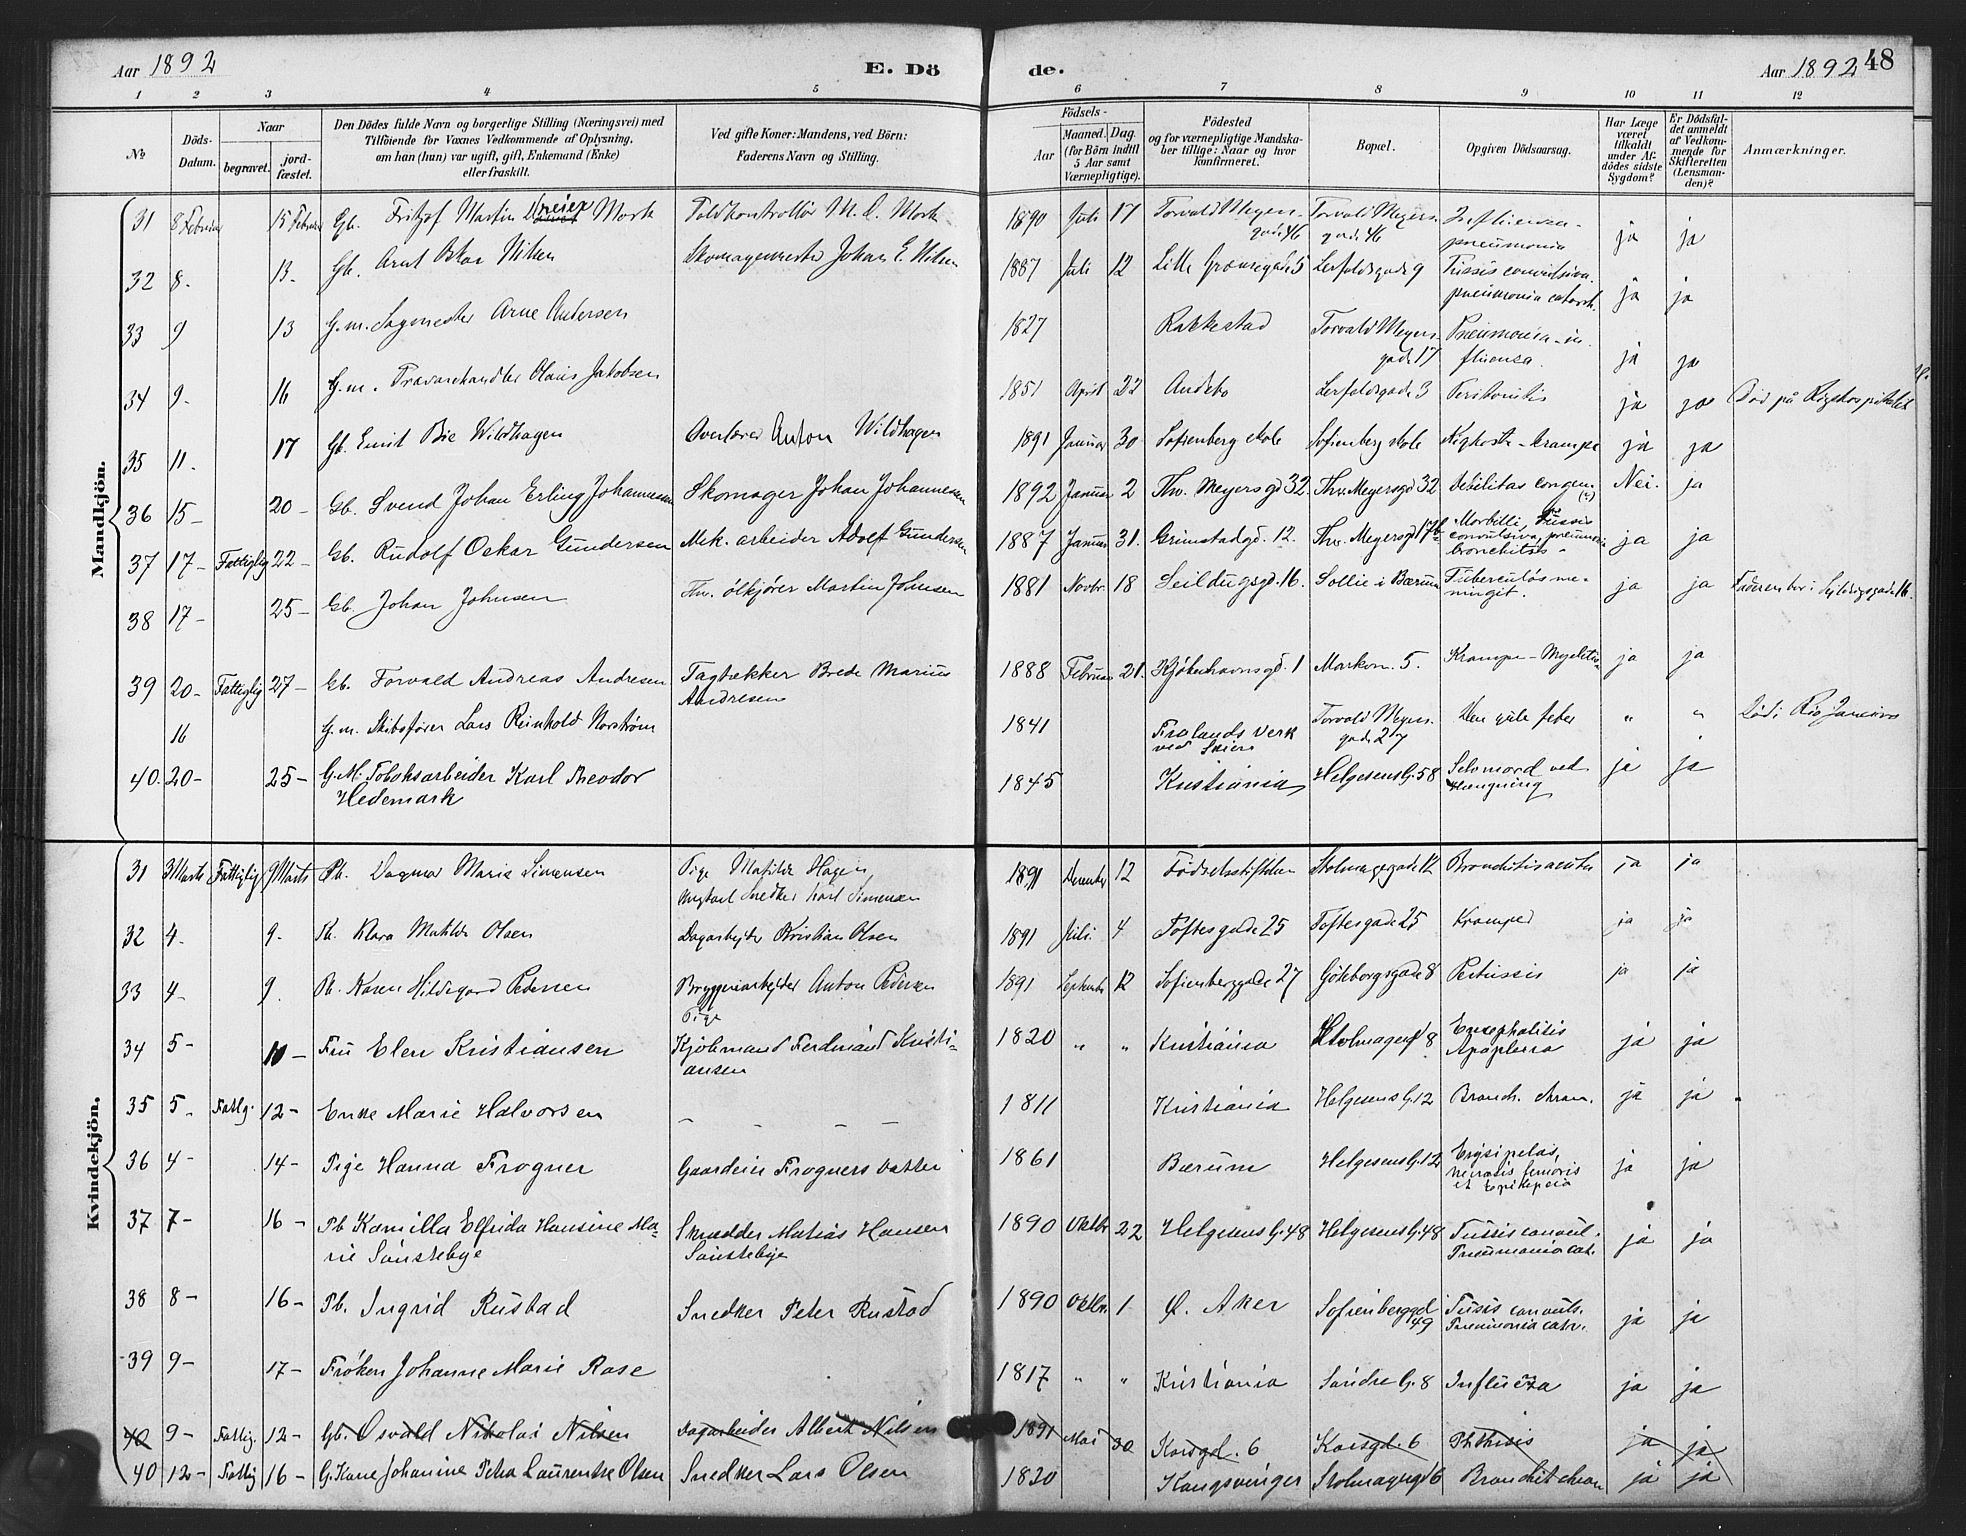 Aar 1892
E. Döde.
Aar 1892
48
1 2 3 4 5 6 7 8 9 10 11 12
No
Döds-Datum.
Naar
begravet.
jordfæstet.
Den Dödes fulde Navn og borgerlige Stilling (Næringsvei) med
Tilföiende for Voxnes Vedkommende af Oplysning,
om han (hun) var ugift, gift, Enkemand (Enke)
eller fraskilt.
Ved gifte Koner: Mandens, ved Börn:
Faderens Navn og Stilling.
Födsels-
Aar
Maaned. Dag.
(for Börn indtil
5 Aar samt
Værnepligtige).
Födested
og for værnepligtige Mandskaber tillige: Naar og hvor
konfirmeret.
Bopæl.
Opgiven Dödsaarsag.
Har Læge
været
tilkaldt
under Afdödes sidste
Sygdom?
Er Dödsfaldet anmeldt
af Vedkommende for
Skifteretten
(Lensmanden)?
Anmærkninger.
Mandkjön.
31 8 Februar 15 Februar Gb. Fritjof Martin Dreier Mork Toldkontrollör M. O. Mork 1890 Juli 17 Torvald Meyers gade 46 Torvald Meyers gade 46 Influensa-pneumonia ja ja
32 8. 13. Gb. Arnt Oskar Nilsen Skomagermester Johan E. Nilsen 1887 Juli 12 Lille Grænsegade 5 Lerfaldsgade 9 Tussis convulsiva. pneumonia catarrh. ja ja
33 9 13 G.m. Sagmester Arne Andersen 1827 Rakkestad Torvald Meyers gade 17 Pneumonia-influensa. ja ja
34 9. 16 G.m. Trævarehandler Olaus Jakobsen 1851 April 22 Andebo Lerfaldsgade 3 Peritonitis ja ja Död på Rigshospitalet
35 11. 17 Gb. Emil Bie Wildhagen Overlærer Anton Wildhagen 1891 Januar 30 Sofienberg skole Sofienberg skole Kighoste-krampe ja ja
36 15- 20- Gb. Svend Johan Erling Johannessen Skomager Johan Johannessen 1892 Januar 2 Thv. Meyersgd 32. Thv. Meyersgd 32 Debilitas congen. Nei. ja
37 17- Fattiglig 22- Gb. Rudolf Oskar Gundersen Mek. arbeider Adolf Gundersen 1887 Januar 31. Grimstadgd. 12. Thv. Meyersgd 17b Morbilli, Tussis convulsiva, pneumonia bronchitis- ja ja
38 17- 25- Gb. Johan Johnsen Thv. ölkjörer Martin Johnsen 1881 Novbr. 18 Seildugsgd. 16. Sollie i Bærum Tuberculös meningit. ja ja Faderen bor i Seildugsgade 16.
39 20- Fattiglig 27- Gb. Torvald Andreas Andresen Tagtækker Brede Marius Andresen 1888 Februar 21. Kjöbenhavnsgd. 1 Markvn. 5. Krampe- ja ja
16 G.m. Skibsfører Lars Reinhold Norström 1841 Frolands Verk ved Torvald Meyers gade 27 Den gule feber " " Död i Rio Janeiro
40. 20- 25- G.M. Tobaksarbeider Karl Theodor Hedemark 1845 Kristiania Helgesens G. 58 Selvmord ved Hængning ja ja
Kvindekjön.
31 3 Marts Fattiglig 9 Marts Pb. Dagmar Marie Simensen Pige Matilde Hagen, Ungkarl Snedker Karl Simensen 1891 December 12 Födselsstiftelsen Stolmagergade 12 Bronchitis acuta ja ja
32 4. 9. Pb. Klara Matilde Olsen Dagarbejder Kristian Olsen 1891 Juli. 4 Toftesgade 25 Toftesgade 25 Krampe ja ja
33 4- 9. Pb. Karen Hildegard Pedersen Bryggeriarbejder Anton Pedersen 1891 September 12 Sofienberggade 27 Göteborgsgade 8 Pertussis ja ja
34 5- 10- Fru Elen Kristiansen Kjöbmand Ferdinand Kristiansen 1820 " " Kristiania Stolmagergd 8 Encephalitis Apoplexia ja ja
35 5- Fattlg. 12- Enke Marie Halvorsen - - - - 1811 Kristiania Helgesens G. 12 Bronch. chron. ja ja
36 4- 14- Pige Hanna Frogner Gaardeier Frogners datter 1861 Bærum Helgesens G. 12 Erysipelas, necrosis femoris et ja ja
37 7- 16- Pb. Kamilla Elfrida Hansine Marie Sönstebye Skrædder Matias Hansen Sönstebye 1890 Oktbr 22 Helgesens G. 48 Helgesens G. 48 Tussis convul. Pneumonia cat. ja ja
38 8- 16- Pb. Ingrid Rustad Snedker Peter Rustad 1890 Oktbr. 1 Ø. Aker Sofienberggd 49 Tussis convuls. Pneumonia catr. ja ja
39 9- 17- Fröken Johanne Marie Rose 1817 " " Kristiania Söndre G. 8 Influenza ja ja
40 9- Fattig. 12- Gb. Osvald Nikolai Nilsen Dagarbeider Albert Nilsen 1891 Mai 30 Korsgd. 6 Korsgd. 6 Phthisis ja ja
40 12- Fattig 16- G. Kone Johanine Petra Laurentse Olsen Snedker Lars Olsen 1820 Kongsvinger Stolmagergd 6 Bronchit chron ja ja